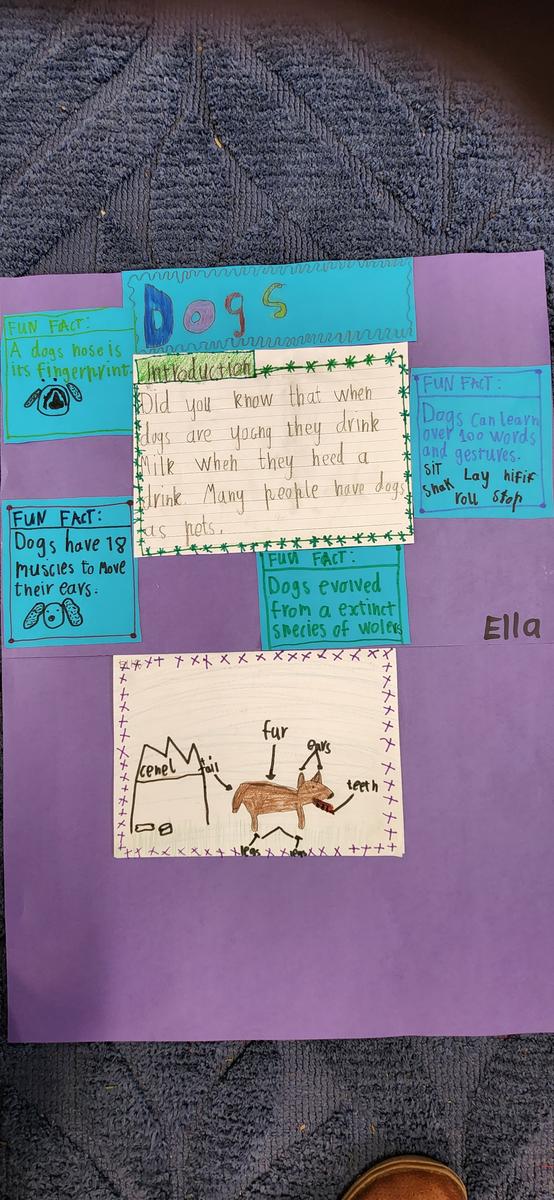 Dogs
FUN FACT:
A dogs nose is
its fingerprint.
Introduction
Did you know that when
dogs are young they drink
Milk when they need a
drink. Many people have dogs
as pets.
FUN FACT:
Dogs can learn
over 100 words
and gestures.
SiT Lay hifif
Shak roll Stop
FUN FACT:
Dogs have 18
muscles to Move
their ears.
FUN FACT:
Dogs evolved
from a extinct
species of wolers
Ella
cenel
tail
fur
ears
teeth
legs
legs